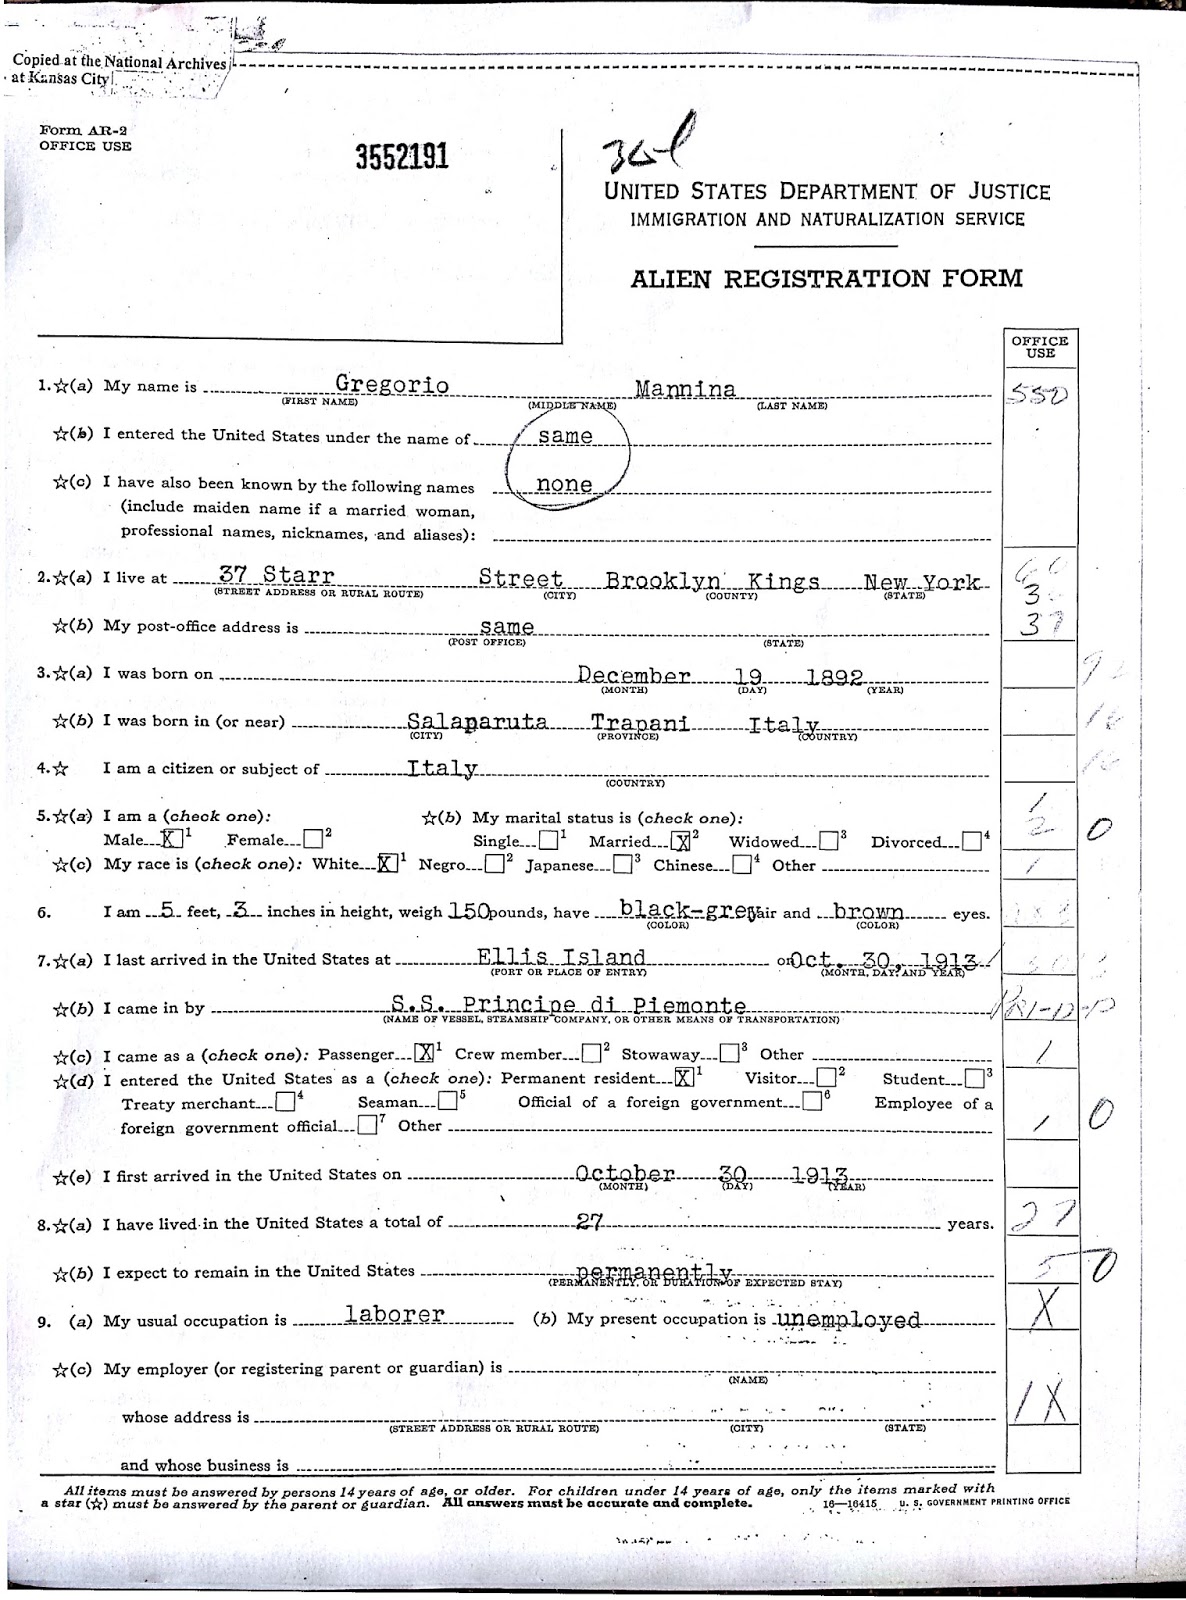 Copied at the National Archives
at Kansas City
Form AR-2
OFFICE USE
3552191
UNITED STATES DEPARTMENT OF JUSTICE
IMMIGRATION AND NATURALIZATION SERVICE
ALIEN REGISTRATION FORM
OFFICE
USE
1.☆(a) My name is Gregorio Mannina
(FIRST NAME) (MIDDLE NAME) (LAST NAME)
550
☆(b) I entered the United States under the name of same
☆(c) I have also been known by the following names none
(include maiden name if a married woman,
professional names, nicknames, and aliases):
2.☆(a) I live at 37 Starr Street Brooklyn Kings New York
(STREET ADDRESS OR RURAL ROUTE) (CITY) (COUNTY) (STATE)
☆(b) My post-office address is same
37
(POST OFFICE) (STATE)
3.☆(a) I was born on December 19 1892
(MONTH) (DAY) (YEAR)
☆(b) I was born in (or near) Salaparuta Trapani Italy
(CITY) (PROVINCE) (COUNTRY)
4.☆ I am a citizen or subject of Italy
(COUNTRY)
5.☆(a) I am a (check one): ☆(b) My marital status is (check one):
1
Male X 1 Female 2 Single 1 Married X 2 Widowed 3 Divorced 4
2 0
☆(c) My race is (check one): White X 1 Negro 2 Japanese 3 Chinese 4 Other
1
6. I am 5 feet, 3 inches in height, weigh 150 pounds, have black-grey hair and brown eyes.
(COLOR) (COLOR)
7.☆(a) I last arrived in the United States at Ellis Island on Oct. 30, 1913
(PORT OR PLACE OF ENTRY) (MONTH, DAY, AND YEAR)
☆(b) I came in by S.S. Principe di Piemonte
PRI-D-P
(NAME OF VESSEL, STEAMSHIP COMPANY, OR OTHER MEANS OF TRANSPORTATION)
☆(c) I came as a (check one): Passenger X 1 Crew member 2 Stowaway 3 Other
1
☆(d) I entered the United States as a (check one): Permanent resident X 1 Visitor 2 Student 3
Treaty merchant 4 Seaman 5 Official of a foreign government 6 Employee of a
foreign government official 7 Other
1 0
☆(e) I first arrived in the United States on October 30 1913
(MONTH) (DAY) (YEAR)
8.☆(a) I have lived in the United States a total of 27 years.
27
☆(b) I expect to remain in the United States permanently
5 0
(PERMANENTLY, OR DURATION OF EXPECTED STAY)
9. (a) My usual occupation is laborer (b) My present occupation is unemployed
X
☆(c) My employer (or registering parent or guardian) is
(NAME)
whose address is
1X
(STREET ADDRESS OR RURAL ROUTE) (CITY) (STATE)
and whose business is
All items must be answered by persons 14 years of age, or older. For children under 14 years of age, only the items marked with
a star (☆) must be answered by the parent or guardian. All answers must be accurate and complete. 16—16415 U. S. GOVERNMENT PRINTING OFFICE